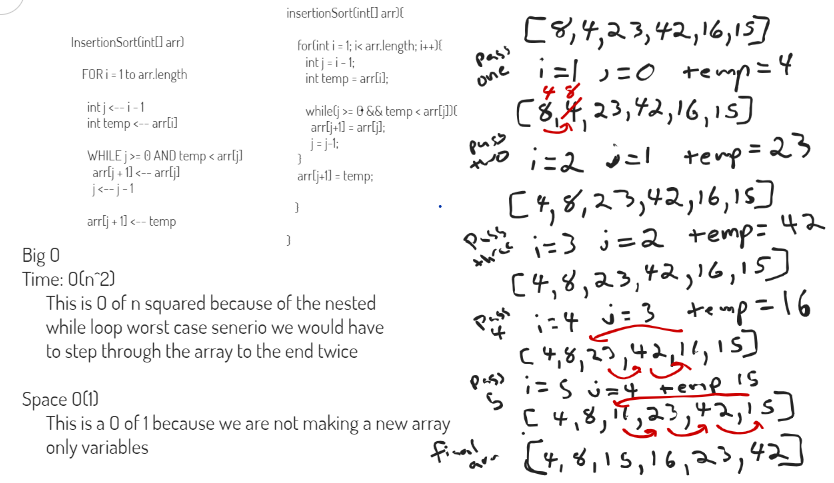 InsertionSort(int[] arr)
FOR i = 1 to arr.length
int j <-- i - 1
int temp <-- arr[i]
WHILE j >= 0 AND temp < arr[j]
arr[j + 1] <-- arr[j]
j <-- j - 1
arr[j + 1] <-- temp
insertionSort(int[] arr){
for(int i = 1; i< arr.length; i++){
int j = i - 1;
int temp = arr[i];
while(j >= 0 && temp < arr[j]){
arr[j+1] = arr[j];
j = j-1;
}
arr[j+1] = temp;
}
}
Big O
Time: O(n^2)
This is O of n squared because of the nested
while loop worst case senerio we would have
to step through the array to the end twice
Space O(1)
This is a O of 1 because we are not making a new array
only variables
[8,4,23,42,16,15]
pass one i=1 j=0 temp=4
4 8
[8,4,23,42,16,15]
pass two i=2 j=1 temp=23
[4,8,23,42,16,15]
Pass three i=3 j=2 temp=42
[4,8,23,42,16,15]
Pass 4 i=4 j=3 temp=16
[4,8,23,42,16,15]
pass 5 i=5 j=4 temp 15
[4,8,16,23,42,15]
final arr [4,8,15,16,23,42]